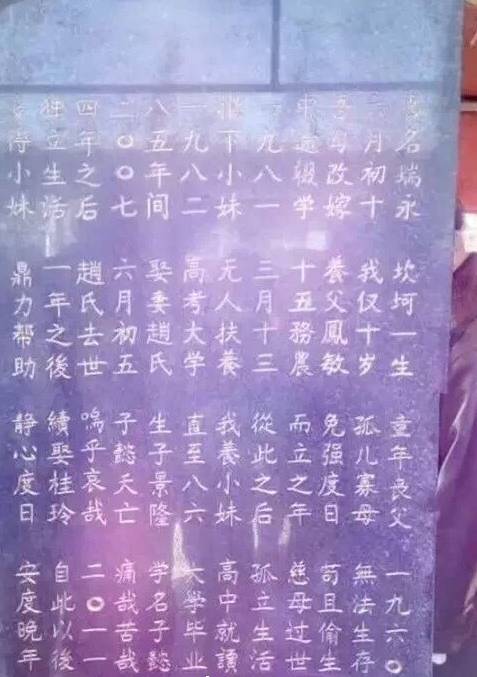 名瑞永 坎坷一生 童年丧父 一九六〇
月初十 我仅十岁 孤儿寡母 無法生存
吾母改嫁 養父鳳敏 免强度日 苟且偷生
中途辍学 十五務農 而立之年 慈母过世
一九八一 三月十三 從此之后 孤立生活
下小妹 无人扶養 我養小妹 高中就讀
一九八二 高考大学 直至八六 大学毕业
八五年间 娶妻趙氏 生子景隆 学名子懿
二〇〇七 六月初五 子懿天亡 痛哉苦哉
四年之后 趙氏去世 嗚乎哀哉 二〇一一
独立生活 一年之後 續娶桂玲 自此以後
得小妹 鼎力帮助 静心度日 安度晚年